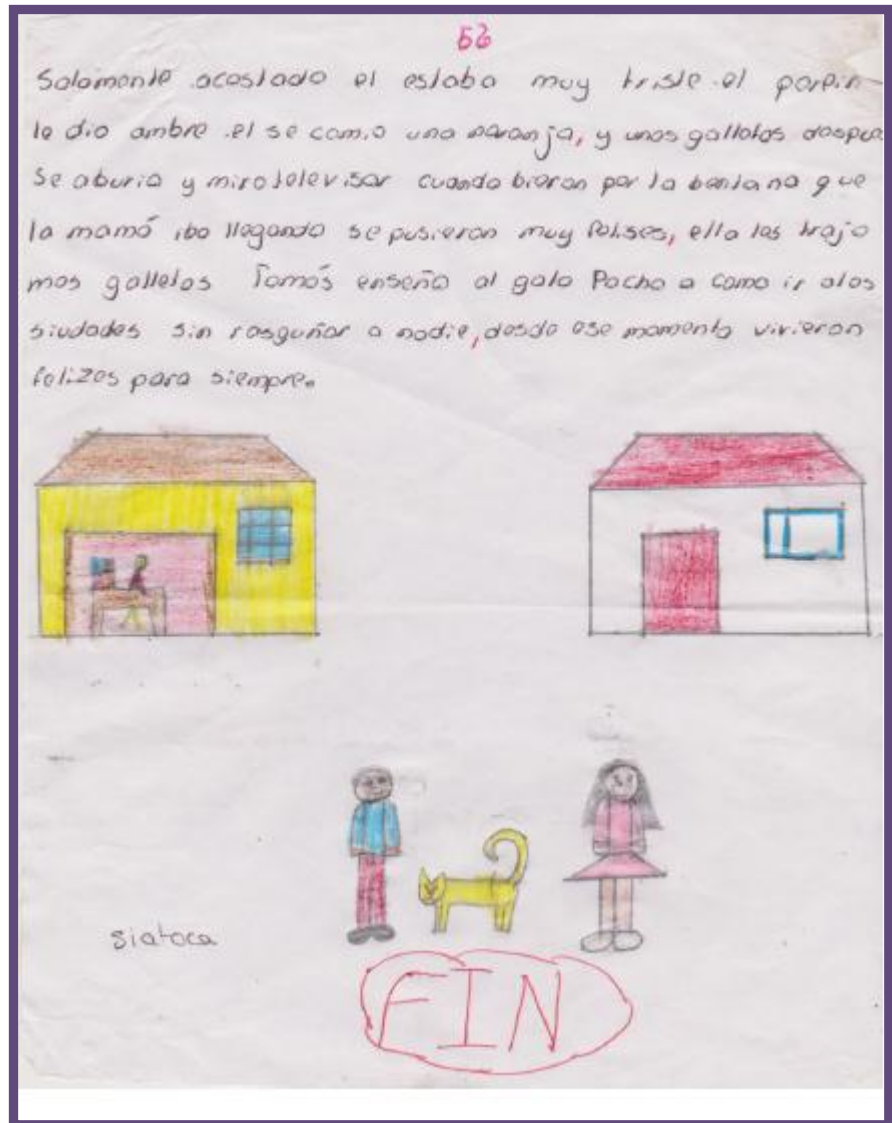 56
Solamente acostado el estaba muy triste el porfin
le dio ambre .el se comio una naranja, y unas galletas despue
Se aburia y miro televisar cuando bieron por la bentana que
la mamá iba llegando se pusieron muy felises, ella les trajo
mas galletas Tomás enseño al gato Pocho a como ir alas
siudades sin rasguñar a nadie, desde ese momento vivieron
felizes para siempre.
siatoca
FIN